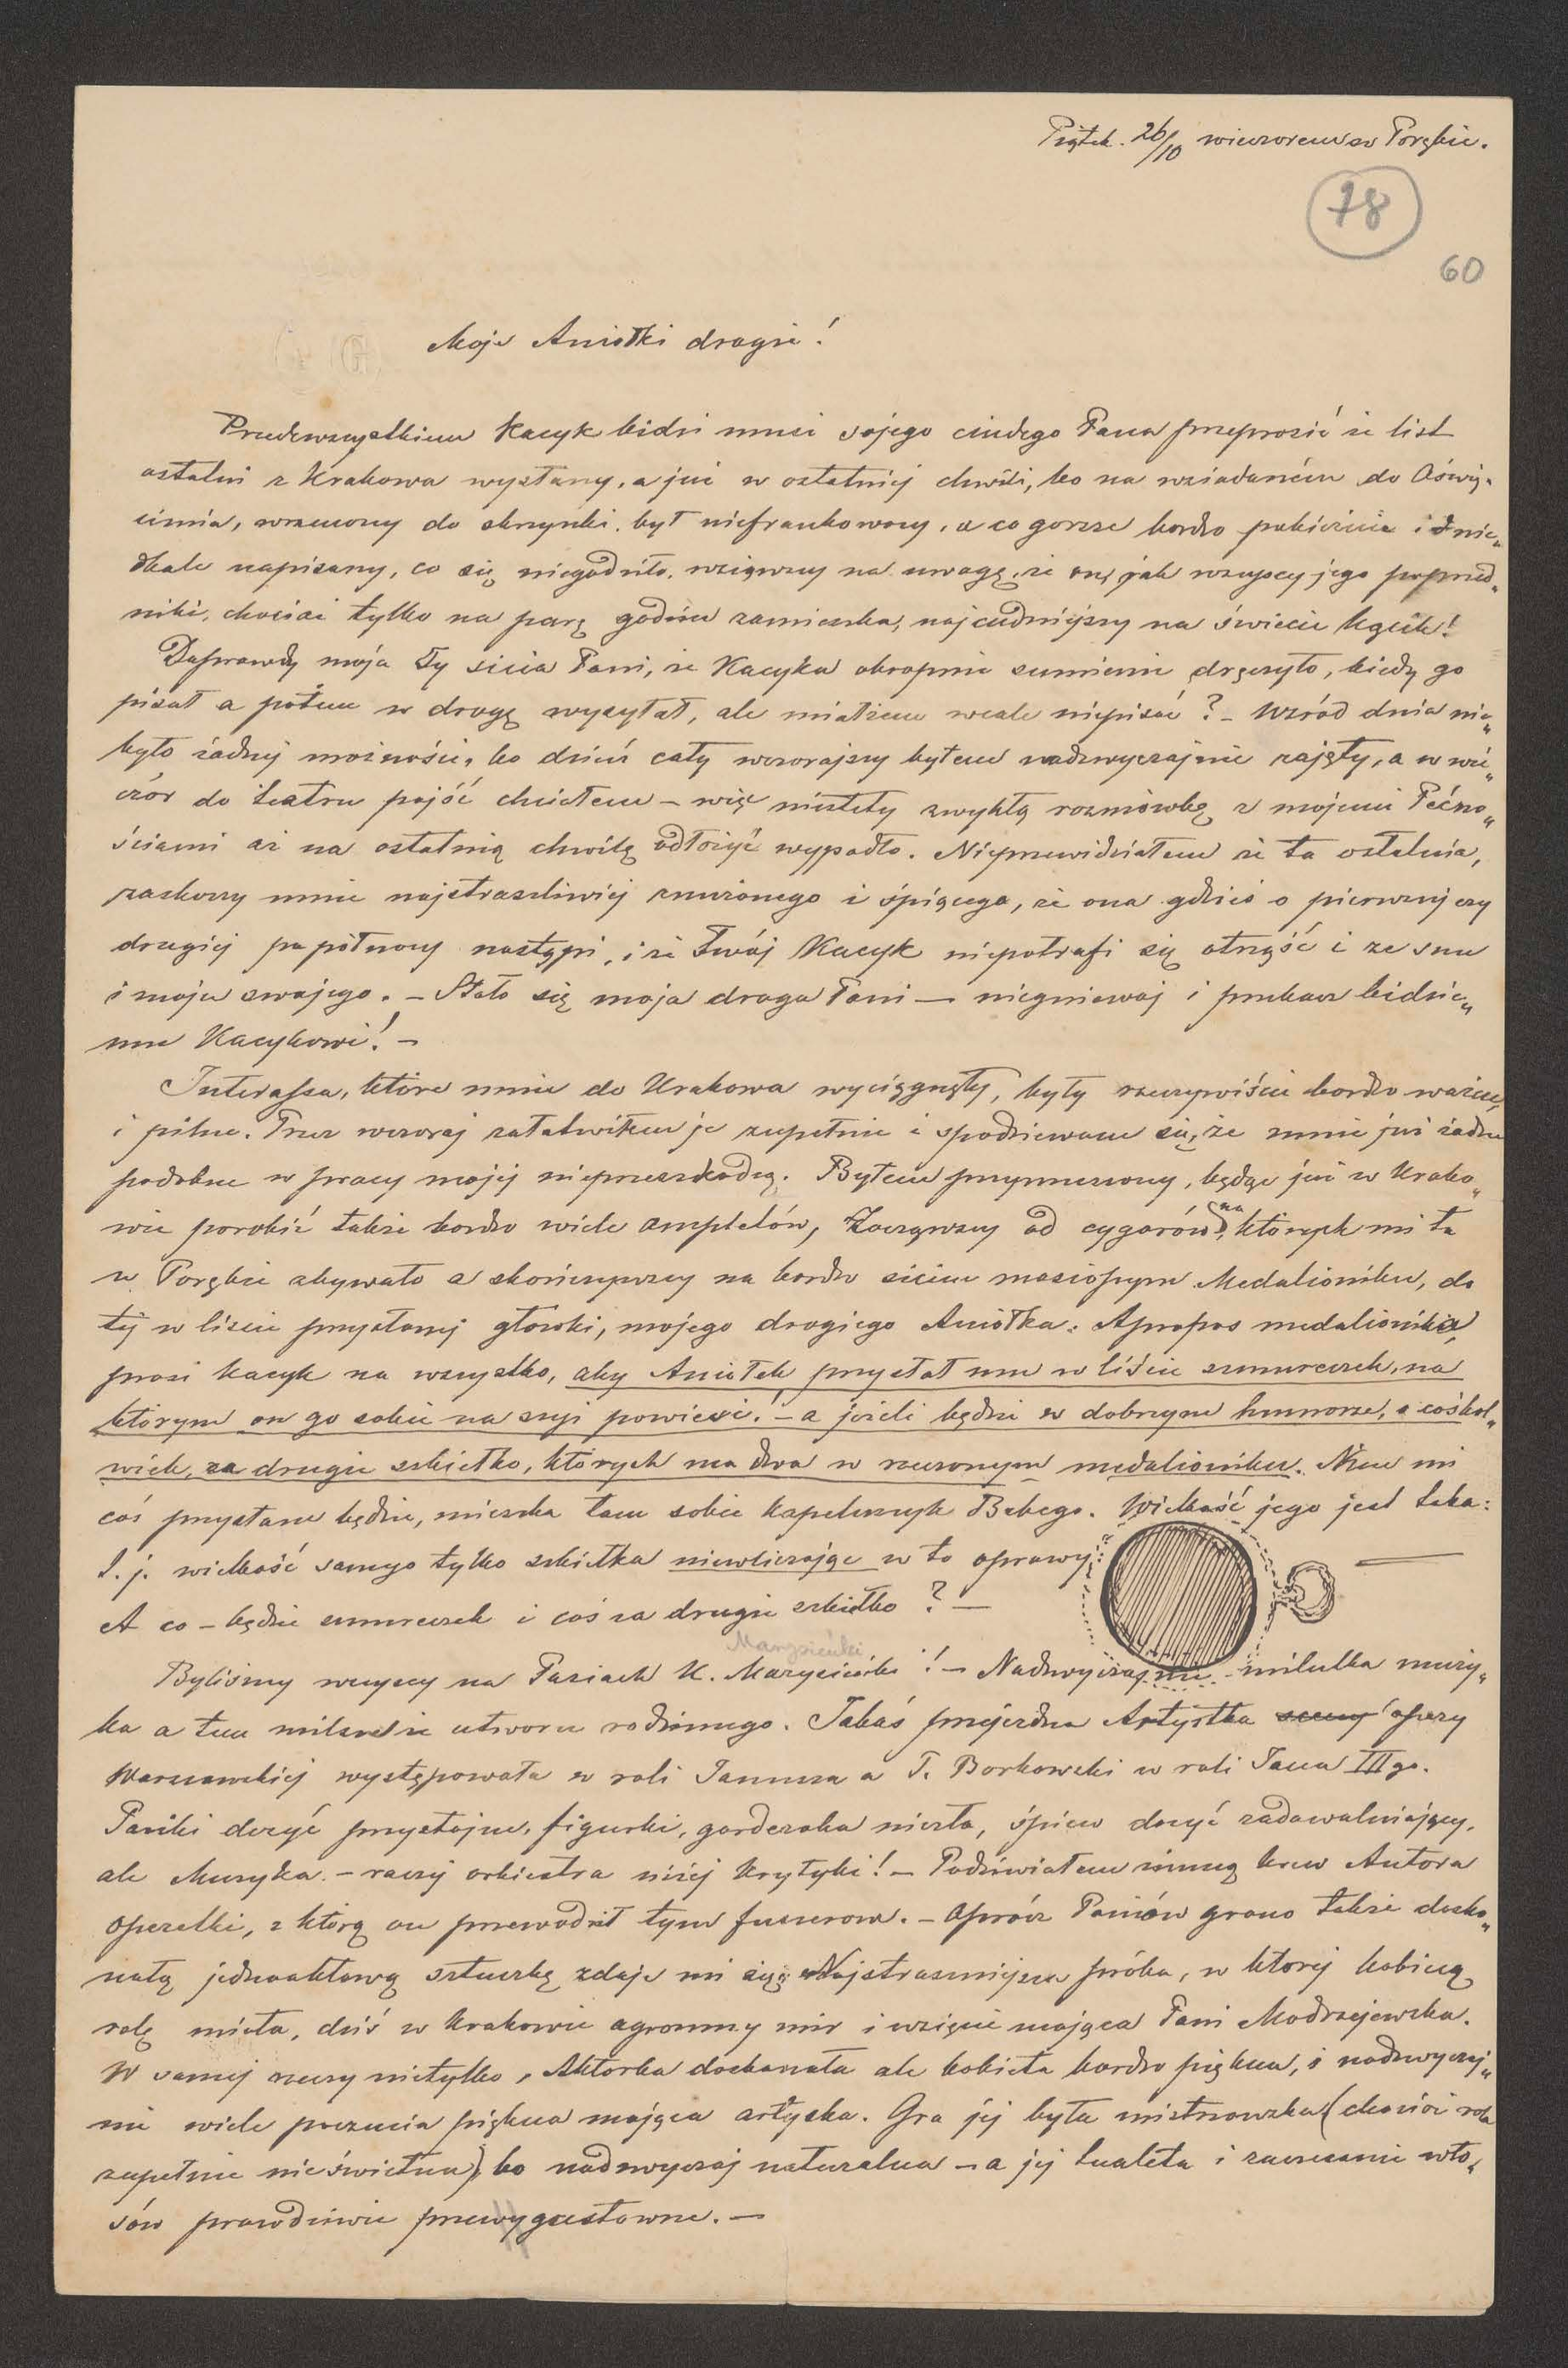 Piątek. 26/10 wieczorem w Porębie.
78
60
Moje Aniołki drogie!
Przedewszystkiem Kacyk bidzi musi sojego ciudego Pana przeprosić że list
ostatni z Krakowa wysłany, a już w ostatniej chwili, bo na wsiadaniem do Oświę„
cimia, wrzucony do skrzynki, był niefrankowany, a co gorsze bardzo pobieżnie i nie„
dbale napisany, co się niegodziło, wziąwszy na uwagę, że on, jak wszyscy jego poprzed„
niki, chociaż tylko na parę godzin zamieszka, najcudniejszy na świecie kącik!
Doprawdy moja Ty sicia Pani, że Kacyka okropnie sumienie dręczyło, kiedy go
pisał a potem w drogę wysyłał, ale miałżem wcale niepisać? – Wśród dnia nie„
było żadnej możności, bo dzień cały wczorajszy byłem nadzwyczajnie zajęty, a w wie„
czór do teatru pójść chciałem – więc niestety zwykłą rozmówkę z mojemi Pećno„
ściami aż na ostatnią chwilę odłożyć wypadło. Nieprzewidziałem że ta ostatnia,
zaskoczy mnie najstraszliwiej znużonego i śpiącego, że ona gdzieś o pierwszej czy
drugiej po północy nastąpi, i że Twój Kacyk niepotrafi się otrząść i ze snu
i moju swojego. – Stało się moja droga Pani – niegniewaj i przebacz bidzie„
mu Kacykowi! –
Interessa, które mnie do Krakowa wyciągnęły, były rzeczywiście bardzo ważne,
i pilne. Przez wczoraj załatwiłem je zupełnie i spodziewam się, że mnie już żadne
podobne w pracy mojej nieprzeszkodzą. Byłem przymuszony, będąc już w Krako„
wie porobić także bardzo wiele ampletów, Zacząwszy od cygarów, na których mi tu
w Porębie zbywało a skończywszy na bardzo siciem masiopym Medalioniku, do
tej w liście przysłanej główki, mojego drogiego Aniołka. Apropos medalionika,
prosi Kacyk na wszystko, aby Aniołek przysłał mu w liście sznureczek, na
którym on go sobie na szyi powiesi! – a jeżeli będzie w dobrym humorze, i cośkol„
wiek, za drugie szkiełko, których ma dwa w rzeczonym medalioniku. Nim mi
coś przysłane będzie, mieszka tam sobie kapeluszyk Bebego. Wielkość jego jest taka:
t. j. wielkość samego tylko szkiełka niewliczając w to oprawy:
A co – będzie sznureczek i coś za drugie szkiełko? –
Marysieńki
Byliśmy wszyscy na Paziach K. Marysieńki! – Nadzwyczajnie milutka muzy„
ka a tem milsze że utworu rodzinnego. Jakaś przejezdna Artystka sceny opery
Warszawskiej występowała w roli Janusza a P. Borkowski w roli Jana IIIgo.
Paziki dosyć przystojne, figurki, garderoba niezła, śpiew dosyć zadawalniający,
ale Muzyka. – raczej orkiestra niżej krytyki! – Podziwiałem zimną krew Autora
operetki, z którą on przewodził tym fuszerom. – Oprócz Paziów grano także dosko„
nałą jednoaktową sztuczkę zdaje mi się Najstraszniejsza próba, w której kobiecą
rolę miała, dziś w Krakowie ogromny mir i wzięcie mająca Pani Modrzejewska.
W samej rzeczy nietylko, Aktorka doskonała ale kobieta bardzo piękna, i nadzwyczaj„
nie wiele poczucia piękna mająca artystka. Gra jej była mistrzowska (chociaż rola
zupełnie nieświetna), bo nadzwyczaj naturalna – a jej tualeta i zaczesanie wło„
sów prawdziwie przewygustowne. –